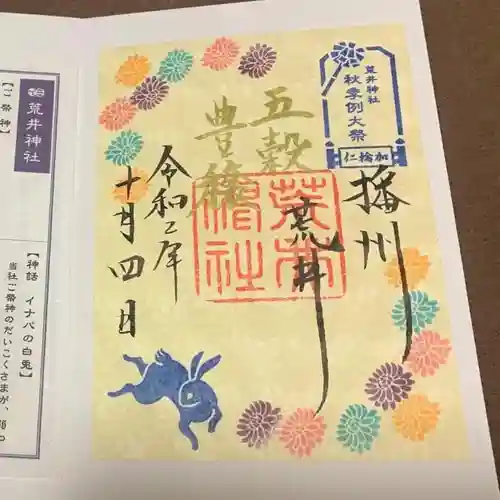 荒井神社
秋季例大祭
加輪仁
播州
荒井
五穀
豊穣
荒井神社
令和二年
十月四日
荒井神社
【ご祭神】
【神話 イナバの白兎】
当社ご祭神のだいこくさまが、